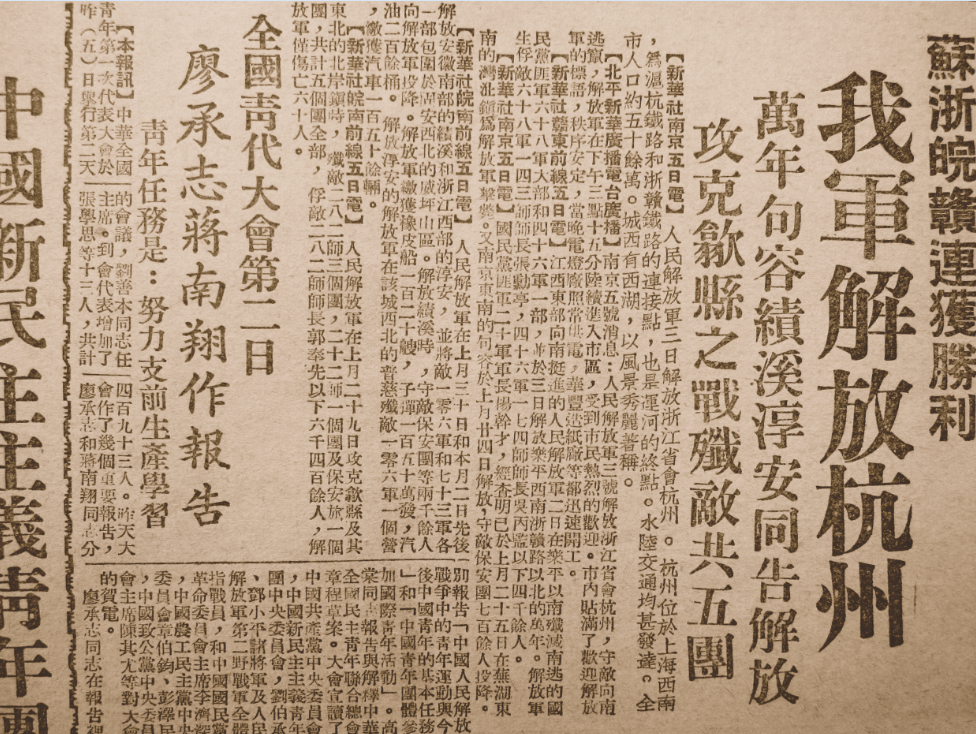 蘇浙皖贛連獲勝利
我軍解放杭州
萬年句容績溪淳安同告解放
攻克歙縣之戰殲敵共五團
【新華社南京五日電】人民解放軍三日解放浙江省會杭州。杭州位於上海西南
，爲滬杭鐵路和浙贛鐵路的連接點，也是運河的終點。水陸交通均甚發達。全
市人口約五十餘萬。城西有西湖，以風景秀麗著稱。
【北平新華廣播電台廣播】南京五號消息：人民解放軍三號解放浙江省會杭州，守敵向南
逃竄，解放軍在下午三點十五分陸續進入市區，受到市民熱烈的歡迎。市內貼滿了歡迎解放
軍的標語，秩序安定，當晚電燈廠照常供電，華豐造紙廠等都迅速開工。
【新華社贛東前線五日電】江西東部向南挺進的人民解放軍二日在樂平以南殲滅南逃的國
民黨匪軍六十八軍大部和四十六軍一部，並於三日解放樂平西南浙贛路以北的萬年。解放軍
生俘敵六十八軍一四三師師長張勳亭，四十六軍一七四師師長吳以下四千餘人。
【新華社南京五日電】國民黨匪軍二十軍軍長楊幹才，經查明已於上月二十五日在蕪湖東
南的灣沚鎮爲解放軍擊斃。又南京東南的句容於上月廿四日解放，守敵保安團七百餘人投降。
【新華社皖南前線五日電】人民解放軍在上月三十日和本月二日先後
解放安徽南部的績溪和浙江西部的淳安，並將敵一零六軍和七十三軍各
一部包圍於淳安西北的威坪山區。解放績溪時，守敵保安團等兩千餘人
向解放軍投降。解放淳安的解放軍繳獲橡皮船一百二十艘，子彈一百五十萬發，汽
油二百餘桶。解放淳安的解放軍在該城西北的普慈殲敵一零六軍一個營
，繳獲汽車一百五十餘輛。
【新華社皖南前線五日電】人民解放軍在上月二十九日攻克歙縣及其
東北的北岸鎮時，殲敵二八二師三個團，二十二師一個團及保安旅一個
團，共計五個團全部，俘敵二八二師師長郭奉先以下六千四百餘人，解
放軍僅傷亡六十人。
全國青代大會第二日
廖承志蔣南翔作報告
青年任務是：努力支前生產學習
【本報訊】中華全國
青年第一次代表大會於
昨（五）日舉行第二天
的會議，劉善本同志任
主席。到會代表增加了
張學思等十三人，共計
四百九十三人。昨天大
會作了幾個重要報告，
廖承志和蔣南翔同志分
別報告「中國人民解放
戰爭中的青年運動與今
後中國青年的基本任務
」和「中國青年團體參
加國際青年活動」。高
棠同志報告與解釋中華
全國民主青年聯合總會
章程草案。大會宣讀了
中國共產黨中央委員會
，中國新民主主義青年
團中央委員會，劉伯承
、鄧小平諸將軍及人民
解放軍第二野戰軍全體
指戰員，和中國國民黨
革命委員會主席李濟深
，中國農工民主黨中央
委員會章伯鈞、彭澤民
，中國致公黨中央委員
會主席陳其尤等對大會
的賀電。
廖承志同志在報告裡
中國新民主主義青年團